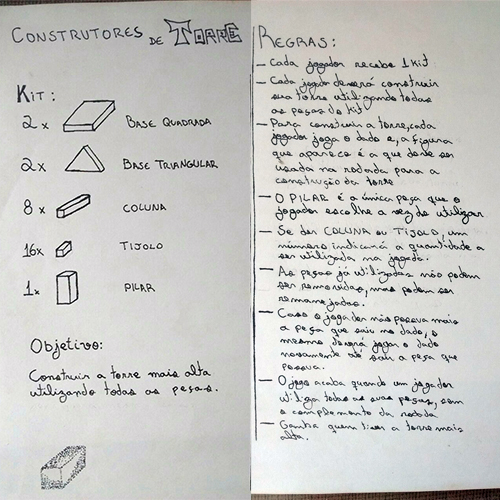 CONSTRUTORES DE TORRE
KIT:
2x BASE QUADRADA
2x BASE TRIANGULAR
8x COLUNA
16x TIJOLO
1x PILAR
Objetivo:
Construir a torre mais alta
utilizando todas as peças.
REGRAS:
— Cada jogador recebe 1 Kit
— Cada jogador deverá construir
sua torre utilizando todas
as peças do Kit
— Para construir a torre, cada
jogador joga o dado e, a figura
que aparece é a que deve ser
usada na rodada para a
construção da torre
— O PILAR é a única peça que o
jogador escolhe a vez de utilizar
— Se der COLUNA ou TIJOLO, um
número indicará a quantidade a
ser utilizada na jogada.
— As peças já utilizadas não podem
ser removidas, mas podem ser
remanejadas.
— Caso o jogador não possua mais
a peça que saiu no dado, o
mesmo deverá jogar o dado
novamente até sair a peça que
possua.
— O jogo acaba quando um jogador
utiliza todas as suas peças, sem
o complemento da rodada
— Ganha quem tiver a torre mais
alta.